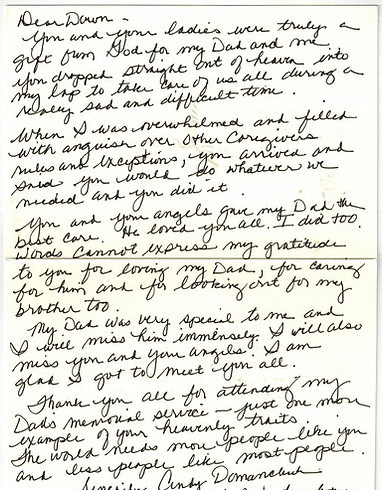 Dear Dawn -
You and your ladies were truly a
gift from God for my Dad and me.
You dropped straight out of heaven into
my lap to take care of us all during a
really sad and difficult time.
When I was overwhelmed and filled
with anguish over other Caregivers
rules and exceptions, you arrived and
said you would do whatever we
needed and you did it.
You and your angels gave my Dad the
best care. He loved you all. I did too.
Words cannot express my gratitude
to you for loving my Dad, for caring
for him and for looking out for my
brother too.
My Dad was very special to me and
I will miss him immensely. I will also
miss you and your angels. I am
glad I got to meet you all.
Thank you all for attending my
Dads memorial service - just one more
example of your heavenly traits.
The world needs more people like you
and less people like most people.
Sincerely, Cindy